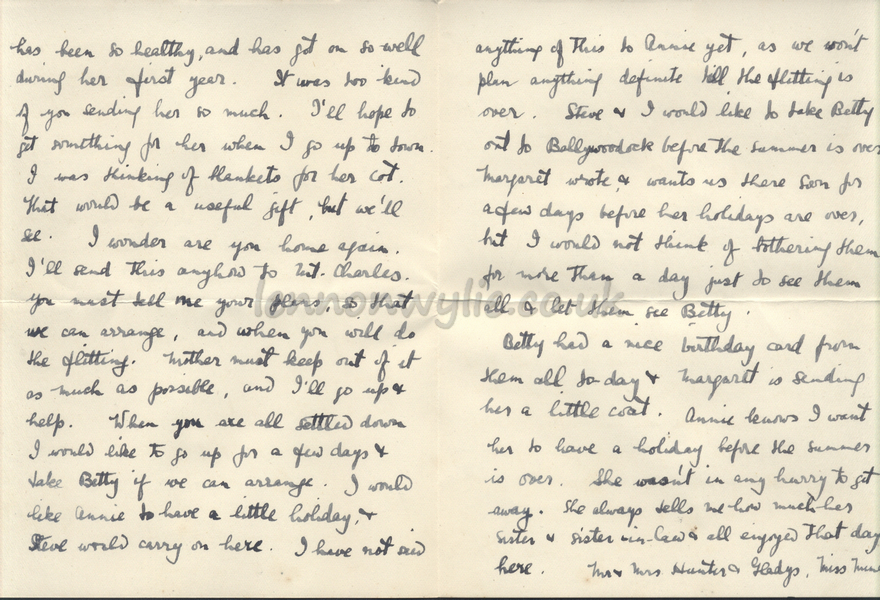 has been so healthy, and has got on so well
during her first year. It was too kind
of you sending her so much. I'll hope to
get something for her when I go up to town.
I was thinking of blankets for her cot.
That would be a useful gift, but we'll
see. I wonder are you home again.
I'll send this anyhow to Mt. Charles.
You must tell me your plans, so that
we can arrange, and when you will do
the flitting. Mother must keep out of it
as much as possible, and I'll go up &
help. When you are all settled down
I would like to go up for a few days &
take Betty if we can arrange. I would
like Annie to have a little holiday, &
Steve would carry on here. I have not said
anything of this to Annie yet, as we won't
plan anything definite till the flitting is
over. Steve & I would like to take Betty
out to Ballywoodock before the summer is over
Margaret wrote & wants us there soon for
a few days before her holidays are over,
but I would not think of bothering them
for more than a day just to see them
all & let them see Betty.
Betty had a nice birthday card from
them all to-day & Margaret is sending
her a little coat. Annie knows I want
her to have a holiday before the summer
is over. She wasn't in any hurry to get
away. She always tells me how much her
sister & sister-in-law & all enjoyed that day
here. Mr & Mrs Hunter & Gladys, Miss
lennonwylie.co.uk